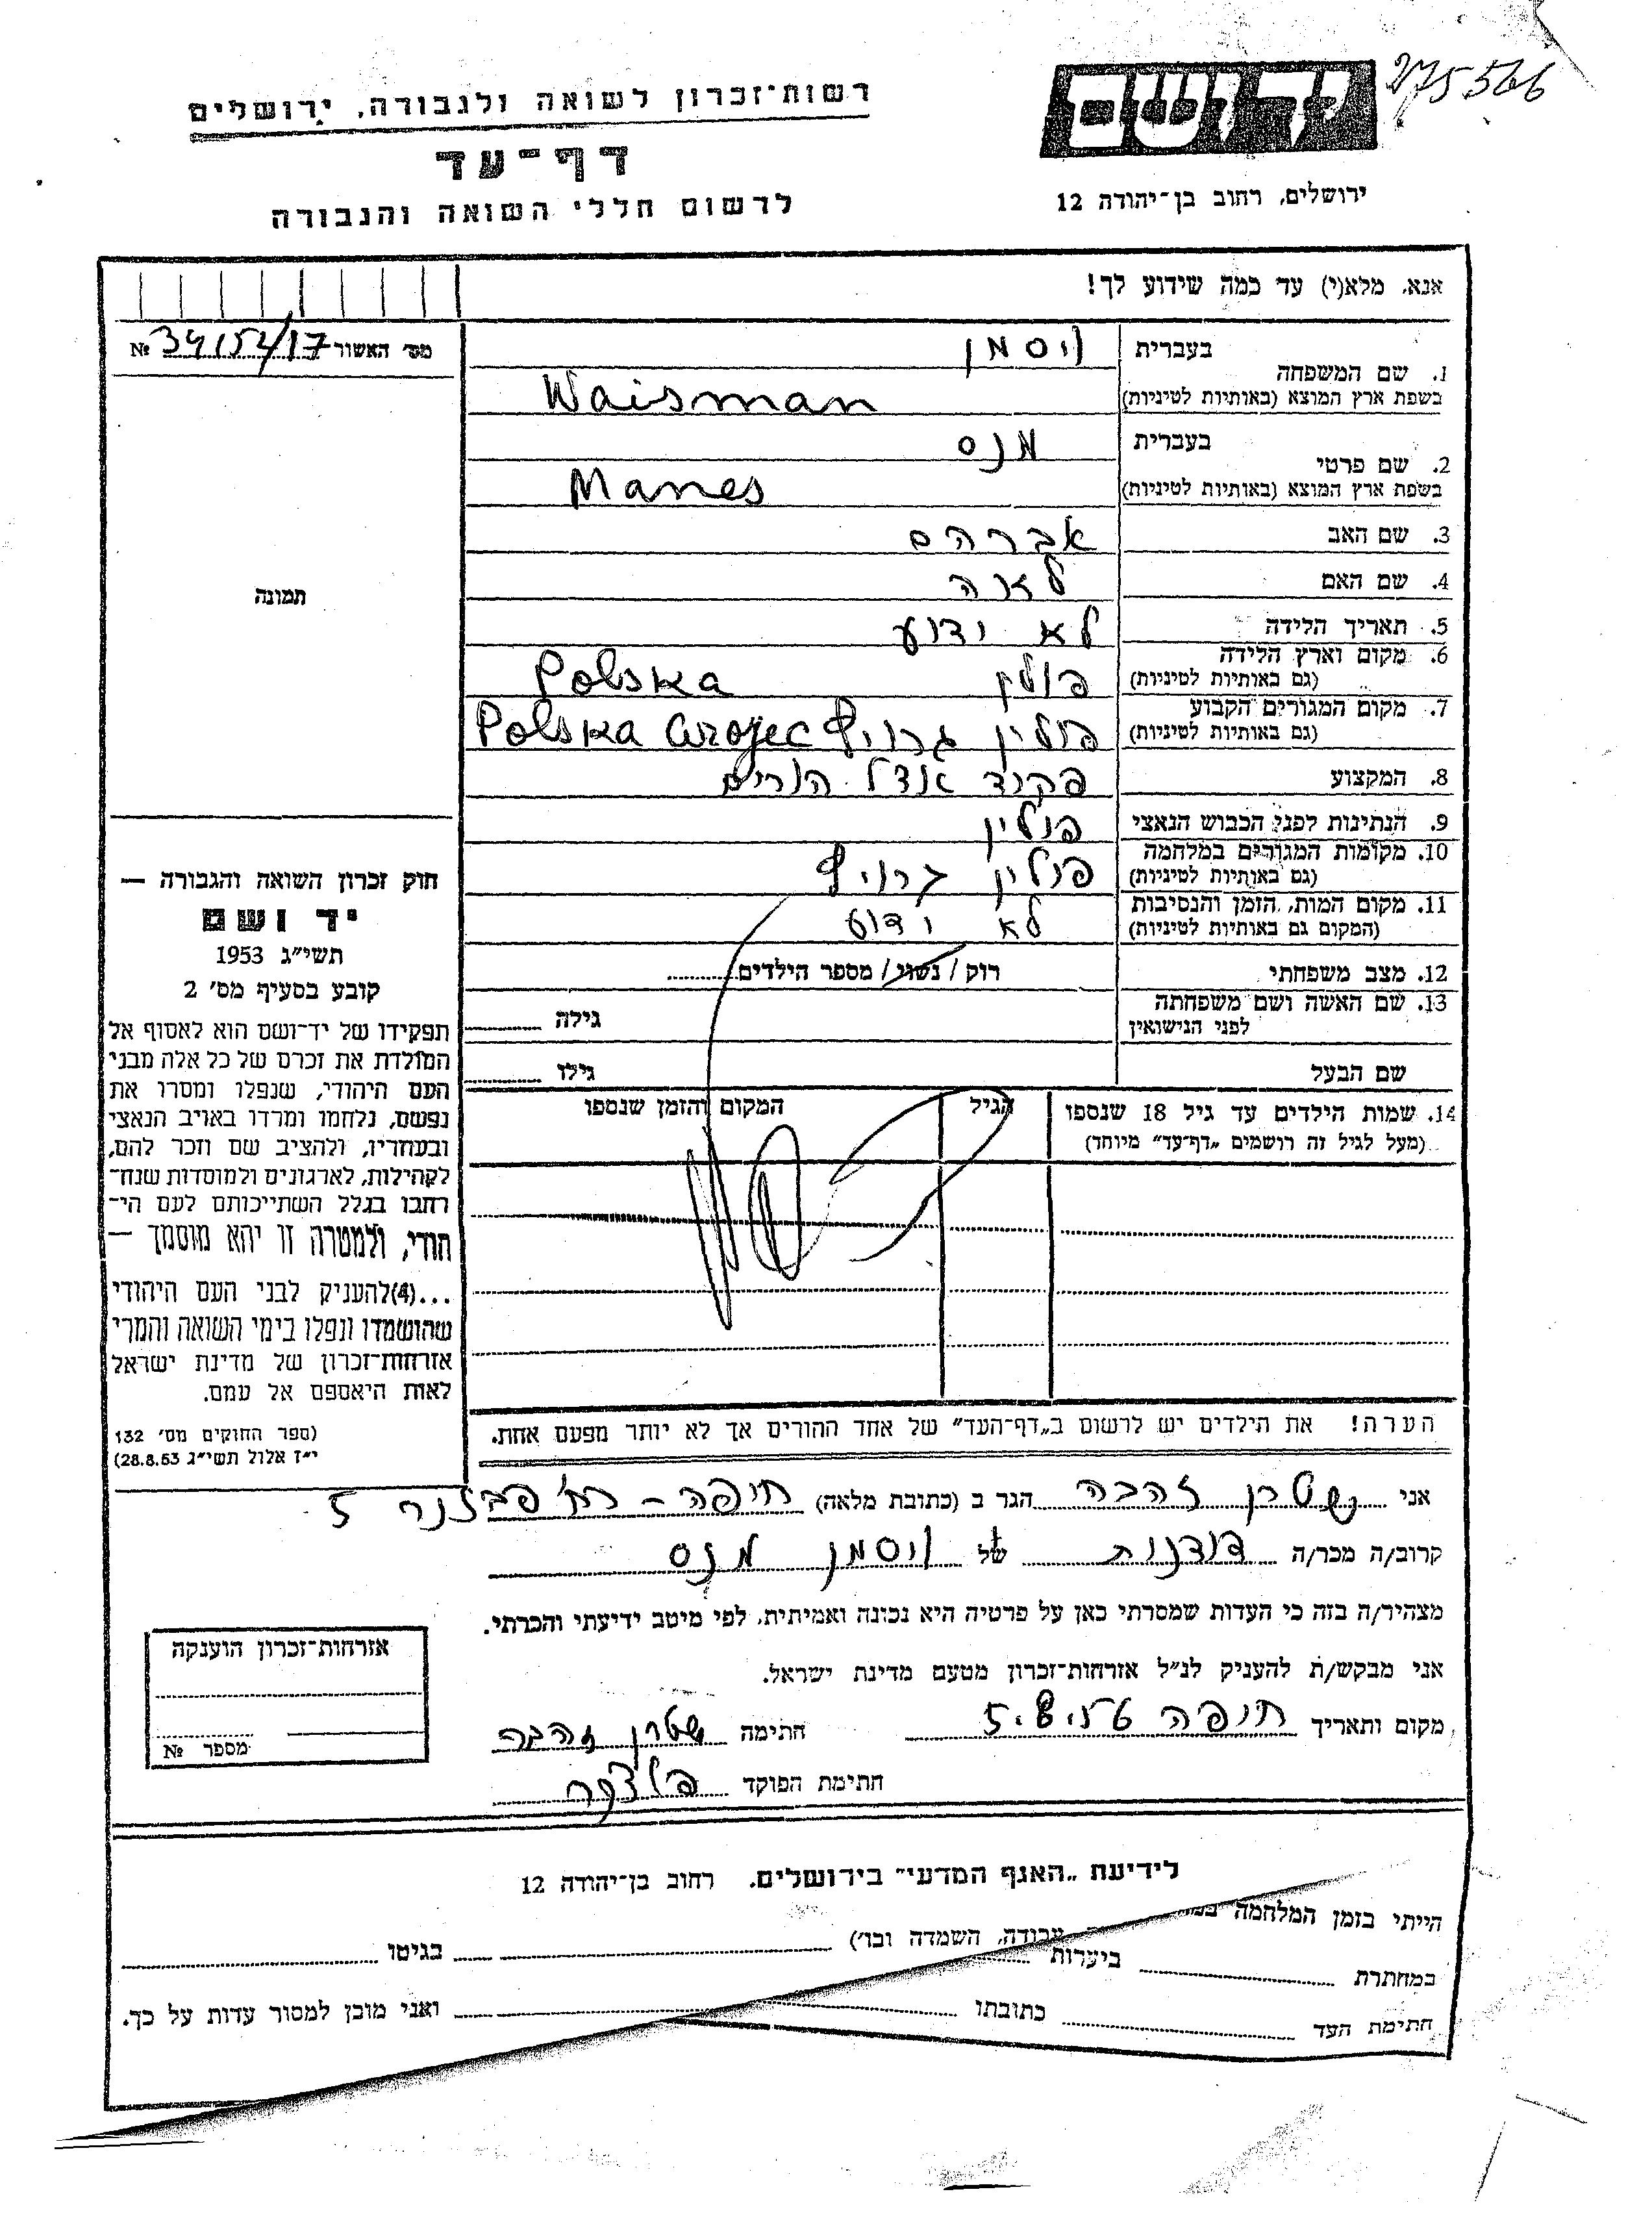 275566
רשות־זכרון לשואה ולגבורה, ירושלים
דף־עד
לרשום חללי השואה והגבורה
יד ושם
ירושלים, רחוב בן־יהודה 12
אנא, מלא(י) עד כמה שידוע לך!
מס׳ האשור 34154/17 №
תמונה
1. שם המשפחה
בעברית ויסמן
בשפת ארץ המוצא (באותיות לטיניות) Waisman
2. שם פרטי
בעברית מנס
בשפת ארץ המוצא (באותיות לטיניות) Manes
3. שם האב אברהם
4. שם האם לאה
5. תאריך הלידה לא ידוע
6. מקום וארץ הלידה
(גם באותיות לטיניות) פולין Polska
7. מקום המגורים הקבוע
(גם באותיות לטיניות) פולין גרויץ Polska Grojec
8. המקצוע פקיד אצל הורים
9. הנתינות לפני הכבוש הנאצי פולין
10. מקומות המגורים במלחמה
(גם באותיות לטיניות) פולין גרויץ
11. מקום המות, הזמן והנסיבות
(המקום גם באותיות לטיניות) לא ידוע
12. מצב משפחתי רוק / נשוי / מספר הילדים
13. שם האשה ושם משפחתה
לפני הנישואין גילה
שם הבעל גילו
14. שמות הילדים עד גיל 18 שנספו הגיל המקום והזמן שנספו
(מעל לגיל זה רושמים „דף־עד” מיוחד)
הערה! את הילדים יש לרשום ב„דף־העד” של אחד ההורים אך לא יותר מפעם אחת.
חוק זכרון השואה והגבורה —
יד ושם
תשי״ג 1953
קובע בסעיף מס׳ 2
תפקידו של יד־ושם הוא לאסוף אל
המולדת את זכרם של כל אלה מבני
העם היהודי, שנפלו ומסרו את
נפשם, נלחמו ומרדו באויב הנאצי
ובעוזריו, ולהציב שם וזכר להם,
לקהילות, לארגונים ולמוסדות שנח־
רבו בגלל השתייכותם לעם הי־
הודי, ולמטרה זו יהא מוסמך —
...(4) להעניק לבני העם היהודי
שהושמדו ונפלו בימי השואה והמרי
אזרחות־זכרון של מדינת ישראל
לאות היאספם אל עמם.
(ספר החוקים מס׳ 132
י״ז אלול תשי״ג 28.8.53)
אני שטרן זהבה הגר ב (כתובת מלאה) חיפה - רח׳ פבזנר 5
קרוב/ה מכר/ה דודנות של ויסמן מנס
מצהיר/ה בזה כי העדות שמסרתי כאן על פרטיה היא נכונה ואמיתית, לפי מיטב ידיעתי והכרתי.
אני מבקש/ת להעניק לנ״ל אזרחות־זכרון מטעם מדינת ישראל.
מקום ותאריך חיפה 5.8.57 חתימה שטרן זהבה
חתימת הפוקד
אזרחות־זכרון הוענקה
מספר №
לידיעת „האגף המדעי” בירושלים. רחוב בן־יהודה 12
הייתי בזמן המלחמה עבודה, השמדה וכו׳) בגיטו
במחתרת ביערות
חתימת העד כתובתו ואני מוכן למסור עדות על כך.